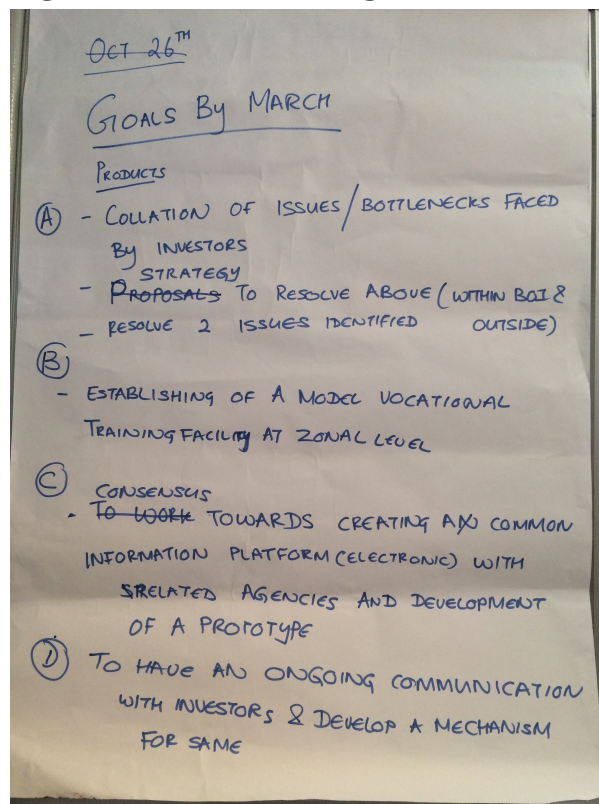 OCT 26TH
GOALS BY MARCH
PRODUCTS
A - COLLATION OF ISSUES/BOTTLENECKS FACED
BY INVESTORS
STRATEGY
- PROPOSALS TO RESOLVE ABOVE (WITHIN BOI &
- RESOLVE 2 ISSUES IDENTIFIED OUTSIDE)
B
- ESTABLISHING OF A MODEL VOCATIONAL
TRAINING FACILITY AT ZONAL LEVEL
C
CONSENSUS
- TO WORK TOWARDS CREATING A COMMON
INFORMATION PLATFORM (ELECTRONIC) WITH
RELATED AGENCIES AND DEVELOPMENT
OF A PROTOTYPE
D TO HAVE AN ONGOING COMMUNICATION
WITH INVESTORS & DEVELOP A MECHANISM
FOR SAME